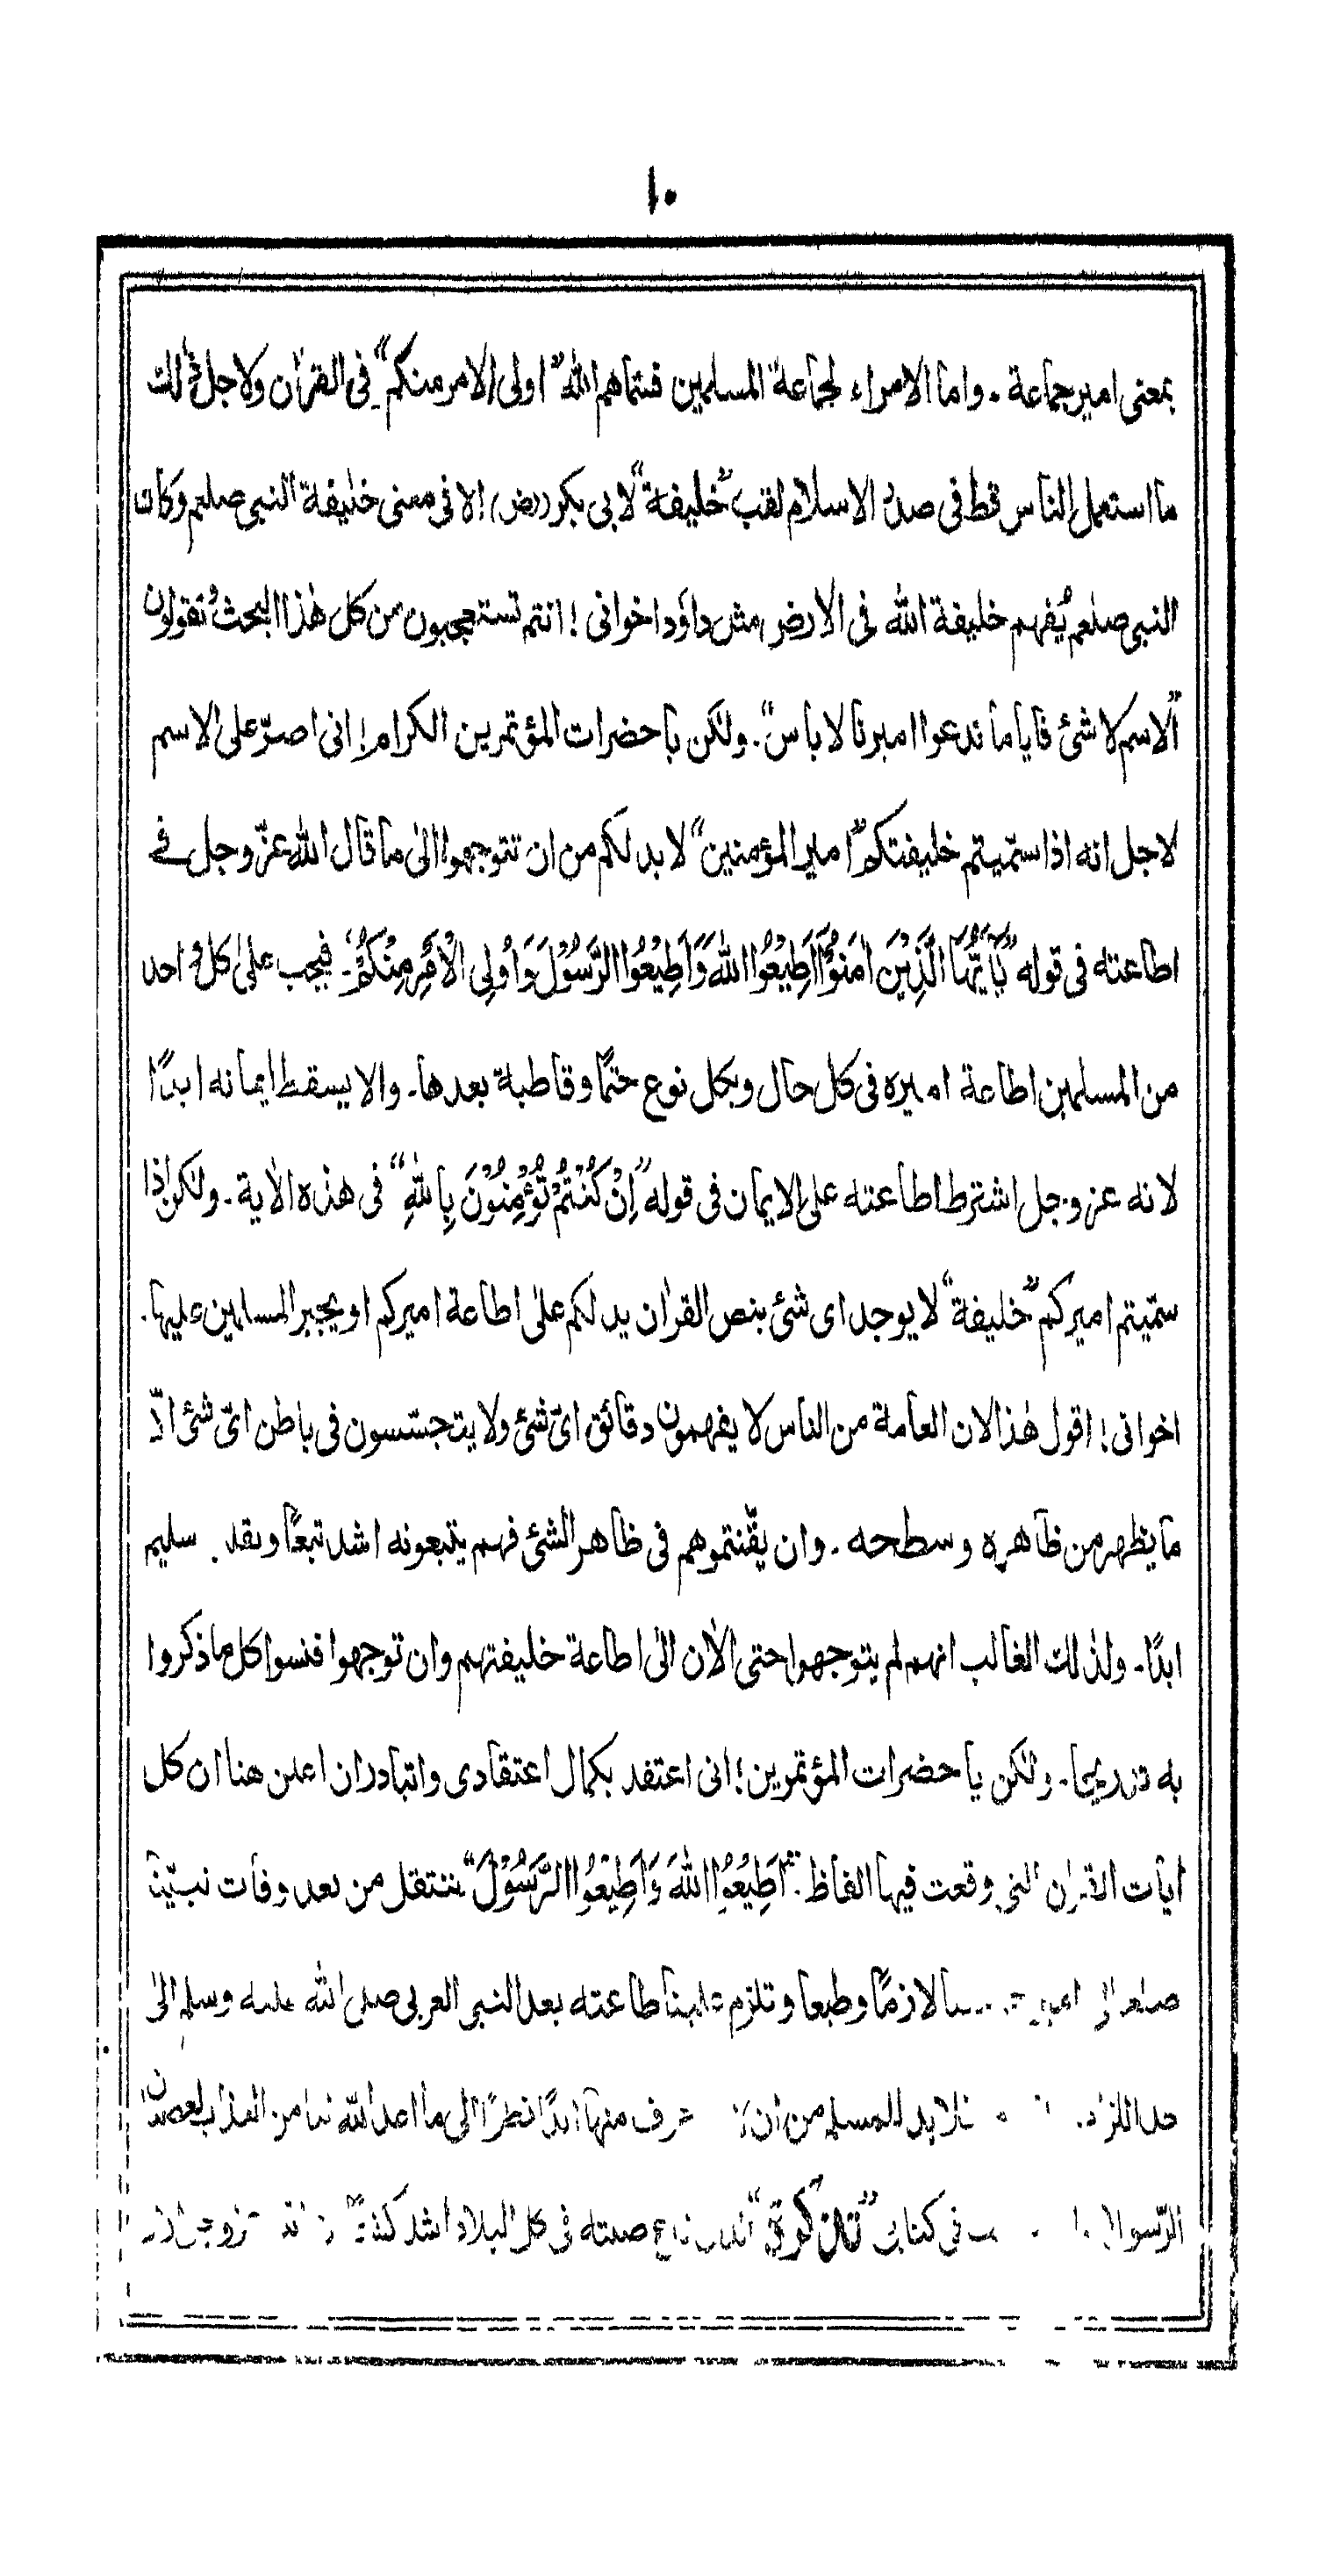 ١٠
بمعنى امير جماعة ـ واما الامراء لجماعة المسلمين فسمّاهم الله "اولى الامر منكم" فى القرآن ولاجل ذٰلك
ما استعمل الناس قط فى صدر الاسلام لقب "خليفة" لابى بكر (رض) الا فى معنى خليفة النبى صلعم وكان
النبى صلعم يُفهم خليفة الله فى الارض مثل داؤد اخوانى ! انتم تستعجبون من كل هٰذا البحث وتقولون
"الاسم لا شئ فايا ما تدعوا اميرنا لا باس" ـ ولٰكن يا حضرات المؤتمرين الكرام ! انى اصرّ على الاسم
لاجل انه اذا سمّيتم خليفتكم "امير المؤمنين" لا بد لكم من ان تتوجهوا الىٰ ما قال الله عزّ وجل فى
اطاعته فى قوله "يٰٓاَيُّهَا الَّذِيْنَ اٰمَنُوْٓا اَطِيْعُوا اللهَ وَاَطِيْعُوا الرَّسُوْلَ وَاُولِى الْاَمْرِ مِنْكُمْ" ـ فيجب علىٰ كل واحد
من المسلمين اطاعة اميره فى كل حال وبكل نوع حتمًا وقاطبة بعدها ـ والا يسقط ايمانه ابدًا
لانه عز وجل اشترط اطاعته على الايمان فى قوله "اِنْ كُنْتُمْ تُؤْمِنُوْنَ بِاللهِ" فى هذه الاٰية ـ ولٰكن اذا
سمّيتم اميركم "خليفة" لا يوجد اى شئ بنص القراٰن يدلكم علىٰ اطاعة اميركم او يجبر المسلمين عليها ـ
اخوانى ! اقول هٰذا لان العامة من الناس لا يفهمون دقائق اىّ شئ ولا يتجسّسون فى باطن اىّ شئ الّا
ما يظهر من ظاهره وسطحه ـ وان يقّنتموهم فى ظاهر الشئ فهم يتبعونه اشد تبعًا وبقد سليم
ابدًا ـ ولذٰلك الغالب انهم لم يتوجهوا حتى الاٰن الىٰ اطاعة خليفتهم وان توجهوا فنسوا كل ما ذكروا
به تدريجا ـ ولٰكن يا حضرات المؤتمرين ! انى اعتقد بكمال اعتقادى واتبادر ان اعلن هنا ان كل
اٰيات القراٰن التى وقعت فيها الفاظ "اَطِيْعُوا اللهَ وَاَطِيْعُوا الرَّسُوْلَ" تنتقل من بعد وفات نبيّنا
صلعم الى لازمًا وطبعا وتلزم علينا طاعته بعد النبى العربى صلى الله عليه وسلم الىٰ
فلا بد للمسلم من ان منها ابدًا نظرًا الى ما اعد الله من العذاب
فى كتابى "تذكرة" صيته فى كل البلاد اشد